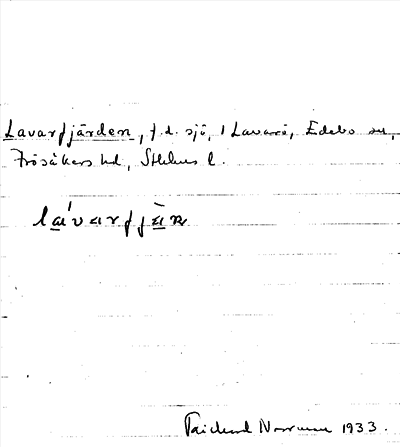 Lavarfjärden, f.d. sjö, i Lavarö, Edebo sn,
Frösåkers hd, Sthlms l.
lávarfjàṇ
Norrman 1933.